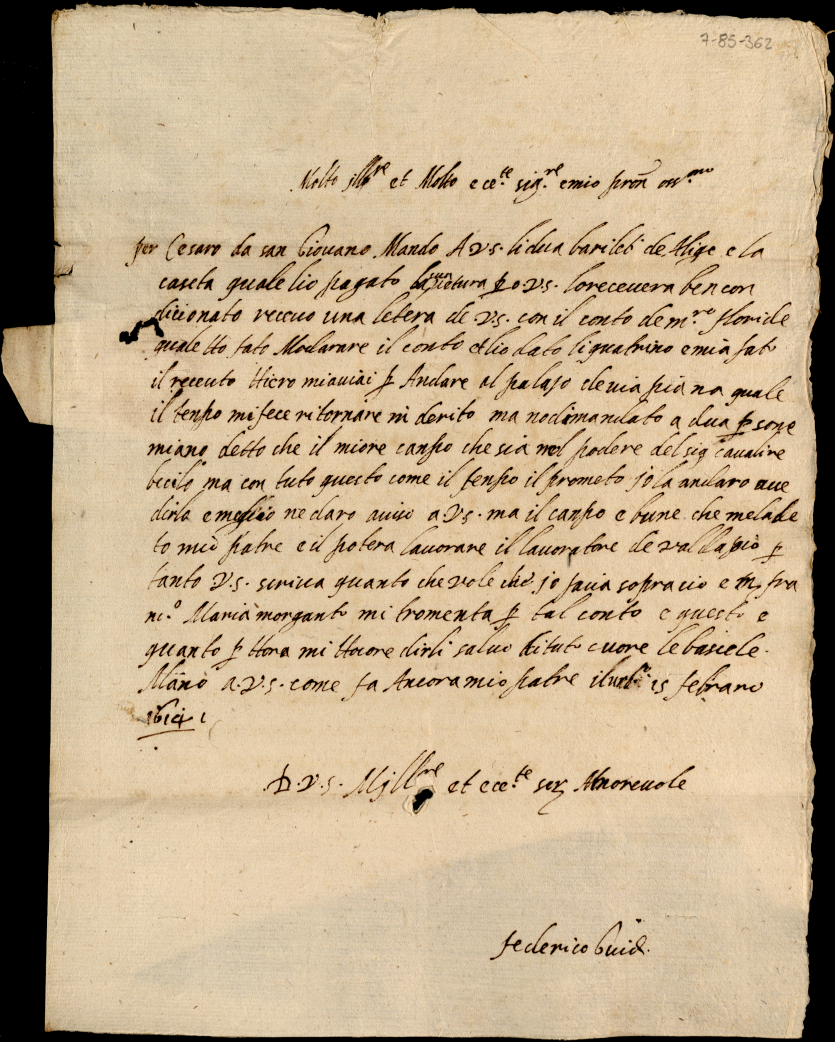 7-85-362
Molto Ill.re et Molto ece.te sig.re e mio pron oss.mo
per Cesaro da san Giovano Mando A VS. li dua barileti de Alige e la
caseta quale lio pagato la po V.S. lo recevera ben con
dicionato recevo una letera de VS. con il conto de m.ro floride
quale Ho fato Modarare il conto et lio dato li quatrino e mia fato
il receuto Hiero miaviai p Andare al palazo de via piana quale
il tenpo mi fece ritornare in derito ma no dimandato a dua p sone
miano detto che il miore canpo che sia nel podere del sig cavalire
ma con tuto questo come il tenpo il prometo jo la andaro a ve
dirla e meglio ne daro aviso a.V.S. ma il canpo e bune che me la de
to mio patre e il potera lavorare il lavoratore de p
tanto V.S. scriva quanto che vole che jo facia sopra cio e fra
ni.o Maria morganto mi tromenta p tal conto e questo e
quanto p Hora mi Hocore dirli salvo di tuto cuore le basicle
Mano a.V.S. come fa Ancora mio patre 15 febraro
D.V.S. M Ill.re et ece.te ser Amorevole
federico Guid.